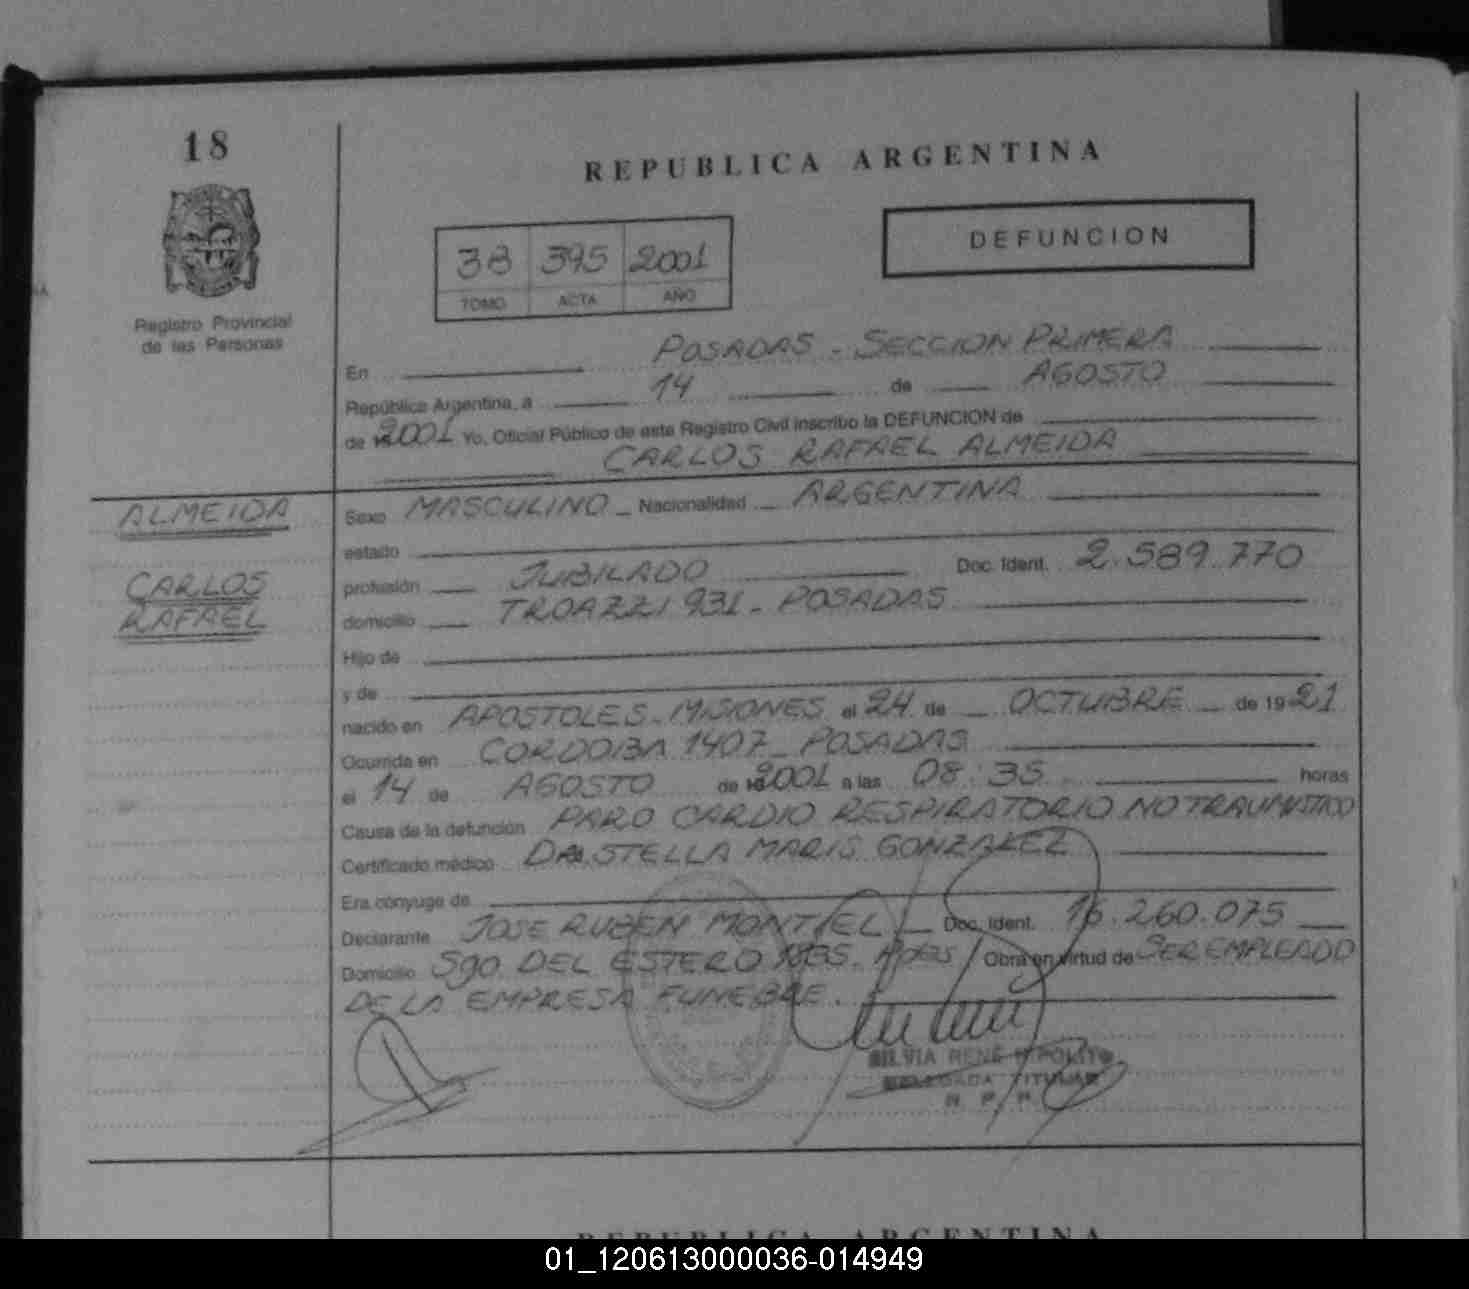 18
REPUBLICA ARGENTINA
38 395 2001
TOMO ACTA AÑO
DEFUNCION
Registro Provincial
de las Personas
En POSADAS - SECCION PRIMERA
República Argentina, a 14 de AGOSTO
de 2001 Yo, Oficial Público de este Registro Civil inscribo la DEFUNCION de
CARLOS RAFAEL ALMEIDA
ALMEIDA
CARLOS
RAFAEL
Sexo MASCULINO - Nacionalidad ARGENTINA
estado
profesión JUBILADO Doc. Ident. 2.589.770
domicilio TROAZZI 931 - POSADAS
Hijo de
y de
nacido en APOSTOLES - MISIONES el 24 de OCTUBRE de 1921
Ocurrida en CORDOBA 1407 - POSADAS
el 14 de AGOSTO de 2001 a las 08:35 horas
Causa de la defunción PARO CARDIO RESPIRATORIO NO TRAUMATICO
Certificado médico DRA. STELLA MARIS GONZALEZ
Era cónyuge de
Declarante JOSE RUBEN MONTIEL Doc. Ident. 16.260.075
Domicilio Sgo. DEL ESTERO Obra en virtud de SER EMPLEADO
DE LA EMPRESA FUNEBRE.
SILVIA RENE HIPOLITO
DELEGADA TITULAR
R. P. P.
REPUBLICA ARGENTINA
01_120613000036-014949